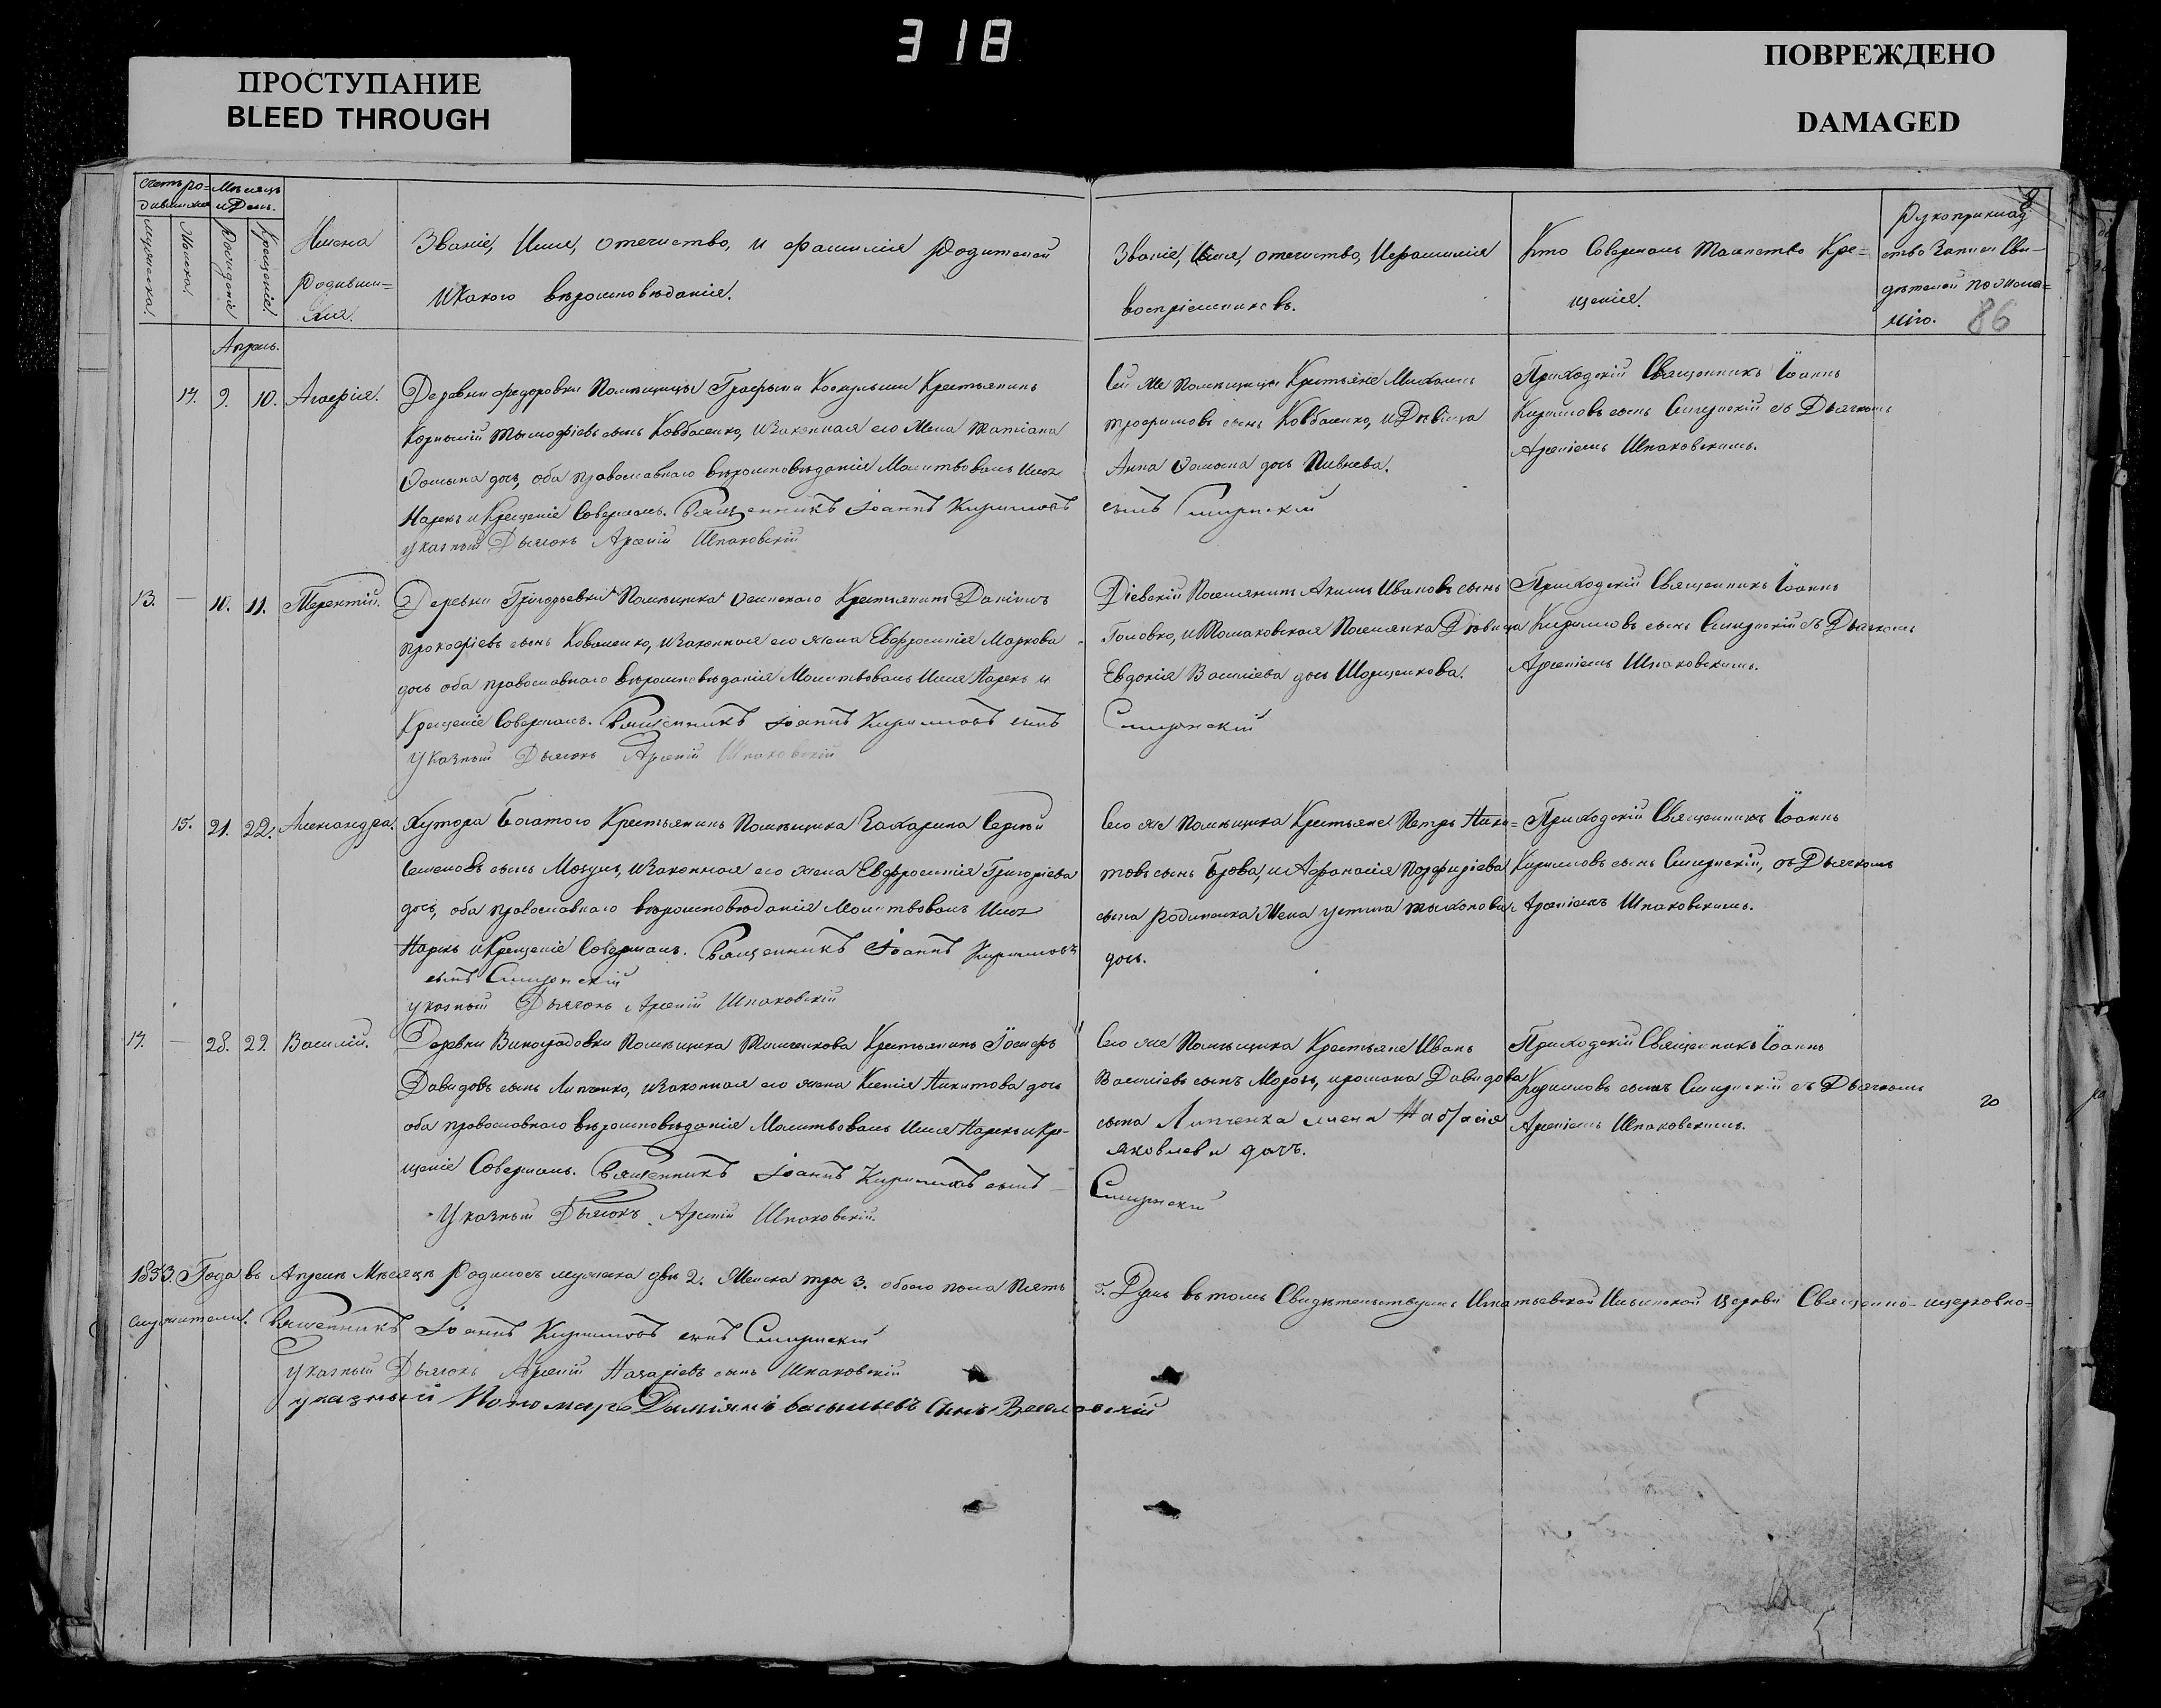 318
ПРОСТУПАНИЕ
BLEED THROUGH
ПОВРЕЖДЕНО
DAMAGED
Счетъ ро-
дившихся
Мѣсяцъ
и День.
Мужеска.
Женска.
Рожденія
Крещенія.
Имена
Родивши=
хся.
Званіе, Имя, отечиство, и фамилія Родителей
и какого вѣроисповѣданія.
Званіе, Имя, отечиство, и фамилія
воспріемниковъ.
Кто Совершалъ Таинство Кре=
щенія.
Рукоприклад
ство Записи Сви-
дѣтелей по желa=
нію.
8
86
Апрель.
14. 9. 10. Агафія.
Деревни Федоровки Помѣщицы Графыни Крестьянинъ
Корнилій Тымофіевъ сынъ Ковбасенко, и Законная его Жена Татіана
дочь, оба православнаго вѣроисповѣданія Молитвовалъ Имя
Нарекъ и Крещеніе Совершалъ. Священникъ Іоаннъ Кирилловъ
указный Дьячокъ Арсеній Шпаковскій
Сей же помѣщицы Крестьяне Михаилъ
Трофимовъ сынъ Ковбасенко, и Дѣвица
Анна дочь Пивнева.
сынъ Смирнскій
Приходскій Священникъ Іоаннъ
Кирилловъ сынъ Смирнскій съ Дьячкомъ
Арсеніемъ Шпаковскимъ.
13. — 10. 11. Терентій.
Деревни Григорьевки Помѣщика Крестьянинъ Даніилъ
Прокофіевъ сынъ Коваленко, и Законная его жена Евфросинія Маркова
дочь оба православнаго вѣроисповѣданія Молитвовалъ Имя Нарекъ и
Крещеніе Совершалъ. Священникъ Іоаннъ Кирилловъ сынъ
Указный Дьячокъ Арсеній Шпаковскій
Діевскій Поселянинъ Акимъ Ивановъ сынъ
Головко, и Томаковская Поселянка Дѣвица
Евдокія Василіева дочь
Смирнскій
Приходскій Священникъ Іоаннъ
Кирилловъ сынъ Смирнскій съ Дьячкомъ
Арсеніемъ Шпаковскимъ.
15. 21. 22. Александра.
Хутора Богатого Крестьянинъ Помѣщика Захарина Сергѣй
Семеновъ сынъ и Законная его жена Евфросинія Григоріева
дочь, оба православнаго вѣроисповѣданія Молитвовалъ Имя
Нарекъ и Крещеніе Совершалъ. Священникъ Іоаннъ Кирилловъ
сынъ Смирнскій
указный Дьячокъ Арсеній Шпаковскій
Сего же помѣщика Крестьяне Петръ Ники=
товъ сынъ Брова, и Афанасія Порфиріева
сына Родиненка Жена Устина Тыхонова
дочь.
Приходскій Священникъ Іоаннъ
Кирилловъ сынъ Смирнскій, съ Дьячкомъ
Арсеніемъ Шпаковскимъ.
14. — 28. 29. Василій.
Деревни Виноградовки Помѣщика Крестьянинъ Іосифъ
Давидовъ сынъ Липченко, и Законная его жена Ксенія Никитова дочь
оба православнаго вѣроисповѣданія Молитвовалъ Имя Нарекъ и Кре-
щеніе Совершалъ. Священникъ Іоаннъ Кирилловъ сынъ
Указный Дьячокъ Арсеній Шпаковскій.
Сего же Помѣщика Крестьяне Иванъ
Василіевъ сынъ Морозъ, и романа Давидова
сына Липченка жена Настасія
яковлева дочь.
Смирнскій
Приходскій Священникъ Іоаннъ
Кирилловъ сынъ Смирнскій съ Дьячкомъ
Арсеніемъ Шпаковскимъ.
20
1853. Года въ Апрелѣ Мѣсяцѣ Родилось мужеска два 2. Женска три 3. обоего пола Пять
5. Душъ въ томъ Свидѣтельствуемъ Игнатьевской Ильинской церкви Священно-церковно=
служители. Священникъ Іоаннъ Кирилловъ сынъ Смирнскій
указный Дьячокъ Арсеній Назаріевъ сынъ Шпаковскій
указный Пономарь Даміянъ васильевъ сынъ